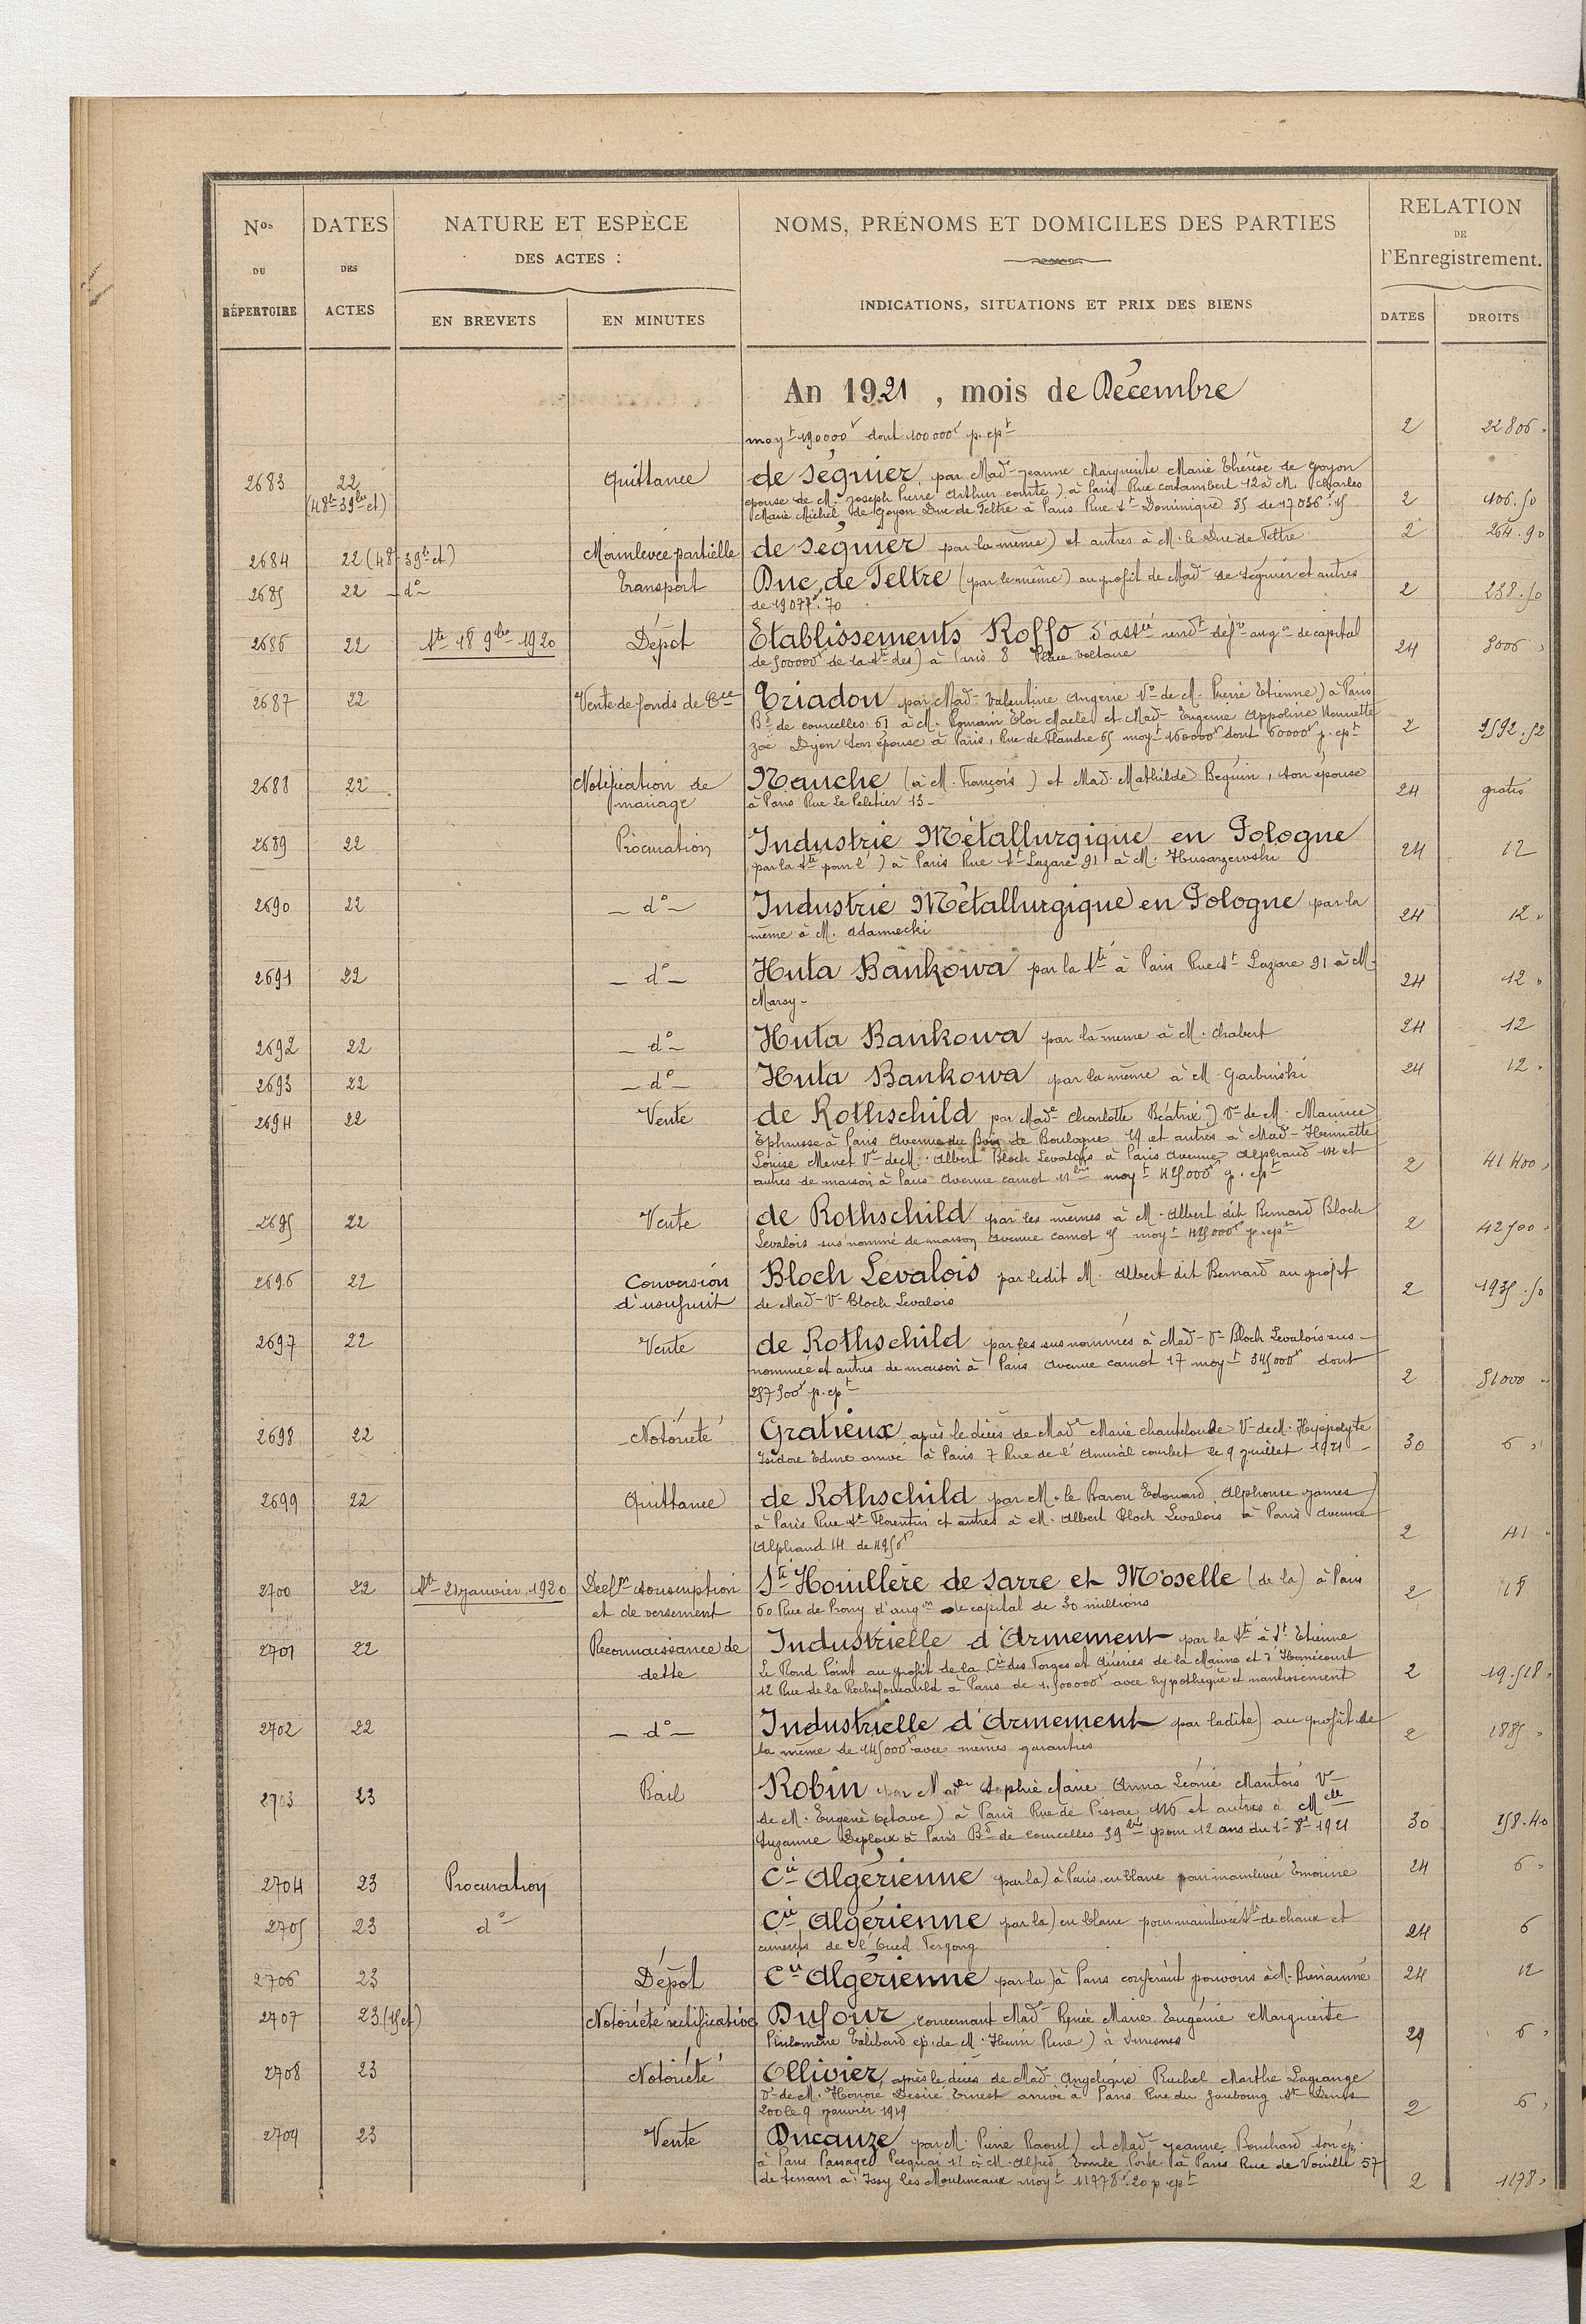 Nos DU RÉPERTOIRE
DATES DES ACTES
NATURE ET ESPÈCE DES ACTES :
EN BREVETS
EN MINUTES
NOMS, PRÉNOMS ET DOMICILES DES PARTIES
INDICATIONS, SITUATIONS ET PRIX DES BIENS
RELATION DE l'Enregistrement.
DATES
DROITS
An 1921, mois de Décembre
moyt 190000f dont 100000f p. cpt 2 22806 "
2683 22 Quittance de Séguier, par Made Jeanne Marguerite Marie Thérèse de Goyon
(48bre 39bre et) épouse de M. Joseph Pierre Arthur comte) à Paris Rue Cortambert 12 à M. Charles
Marie Michel de Goyon Duc de Feltre à Paris Rue St Dominique 35 de 17036f.15 2 106.50
2684 22 (48-39bre et) Mainlevée partielle de Séguier par la même) et autres à M. le Duc de Feltre 2 264.90
2685 22 - do - Transport Duc de Feltre (par le même) au profit de Made de Séguier et autres
de 19077f.70 2 238.50
2686 22 Sté 18 9bre 1920 Dépôt Etablissements Roffo d'assée rendt défve augon de capital
de 500000f de la Sté des) à Paris 8 Place Voltaire 24 3006 "
2687 22 Vente de fonds de Cce Triadou par Made Valentine Angerie Ve de M. Pierre Etienne) à Paris
Bd de Courcelles 61 à M. Romain Eloi Maclé et Made Eugénie Appoline Henriette
Zoé Dijon son épouse à Paris, Rue de Flandre 65 moyt 160000f dont 60000f p. cpt 2 2592.52
2688 22 Notification de mariage Nauche (à M. François) et Mad. Mathilde Béguin, son épouse
à Paris Rue Le Peletier 13 - 24 gratis
2689 22 Procuration Industrie Métallurgique en Pologne
par la Sté pour l') à Paris Rue St Lazare 91 à M. Husarzewski 24 12
2690 22 - do - Industrie Métallurgique en Pologne par la
même à M. Adamiecki 24 12 "
2691 22 - do - Huta Bankowa par la Sté à Paris Rue St Lazare 91 à M.
Marsy - 24 12 "
2692 22 - do - Huta Bankowa par la même à M. Chabert 24 12
2693 22 - do - Huta Bankowa par la même à M. Garbinski 24 12 "
2694 22 Vente de Rothschild par Made Charlotte Béatrix) Ve de M. Maurice
Ephrussi à Paris Avenue du Bois de Boulogne 19 et autres à Made Henriette
Louise Menet Ve de M. Albert Bloch Levalois à Paris Avenue Alphand 14 et
autres de maison à Paris Avenue Carnot 11bis moyt 425.000f p. cpt 2 41400 "
2695 22 Vente de Rothschild par les mêmes à M. Albert dit Bernard Bloch
Levalois sus nommé de maison Avenue Carnot 15 moyt 425000f p. cpt 2 42500 "
2696 22 Conversion d'usufruit Bloch Levalois par ledit M. Albert dit Bernard au profit
de Made Ve Bloch Levalois 2 1935.50
2697 22 Vente de Rothschild par les sus nommés à Made Ve Bloch Levalois sus-
nommée et autres de maison à Paris Avenue Carnot 17 moyt 515000f dont
257500f p. cpt 2 51000 "
2698 22 Notoriété Gratieux après le décès de Made Marie Chanteloube Ve de M. Hyppolyte
Isidore Edme arrivé à Paris 7 Rue de l'Amiral Courbet le 9 juillet 1921 - 30 6 "
2699 22 Quittance de Rothschild par M. le Baron Edouard Alphonse James)
à Paris Rue St Florentin et autres à M. Albert Bloch Levalois à Paris Avenue
Alphand 14 de 4950f 2 41
2700 22 Sté 21 janvier 1920 Décl. souscription et de versement Sté Houillère de Sarre et Moselle (de la) à Paris
60 Rue de Prony d'augon de capital de 30 millions 2 18
2701 22 Reconnaissance de dette Industrielle d'Armement par la Sté à St Etienne
Le Rond Point au profit de la Cie des Forges et Aciéries de la Marine et d'Homécourt
12 Rue de la Rochefoucauld à Paris de 1.500000f avec hypothèque et nantissement 2 19.518 "
2702 22 - do - Industrielle d'Armement par ladite) au profit de
la même de 145000f avec mêmes garanties 2 1885 "
2703 23 Bail Robin par Made Sophie Marie Anna Léonie Mantois Ve
de M. Eugène Octave) à Paris Rue de 116 et autres à Melle
Suzanne Deploix à Paris Bd de Courcelles 39bis pour 12 ans du 1er 8bre 1921 30 158.40
2704 23 Procuration Cie Algérienne par la) à Paris, en blanc pour mainlevée Emorine 24 6 "
2705 23 do Cie Algérienne par la) en blanc pour mainlevée Sté de chaux et
ciments de l'Oued 24 6
2706 23 Dépôt Cie Algérienne par la) à Paris conférant pouvoirs à M. 24 12
2707 23 (15 et) Notoriété rectificative Dufour concernant Made Renée Marie Eugénie Marguerite
Philomène Talibard ép. de M. Henri René) à Suresnes 29 6 "
2708 23 Notoriété Ollivier, après le décès de Made Angélique Rachel Marthe Lagrange
Ve de M. Honoré Désiré Ernest arrivé à Paris Rue du Faubourg St Denis
200 le 9 janvier 1919 2 6 "
2709 23 Vente Ducauze par M. Pierre Raoul) et Made Jeanne Bouchard son ép.
à Paris Passage 11 à M. Alfred Emile Porte à Paris Rue de Vouillé 57
de terrain à Issy les Moulineaux moyt 11778f.20 p. cpt 2 1178 "